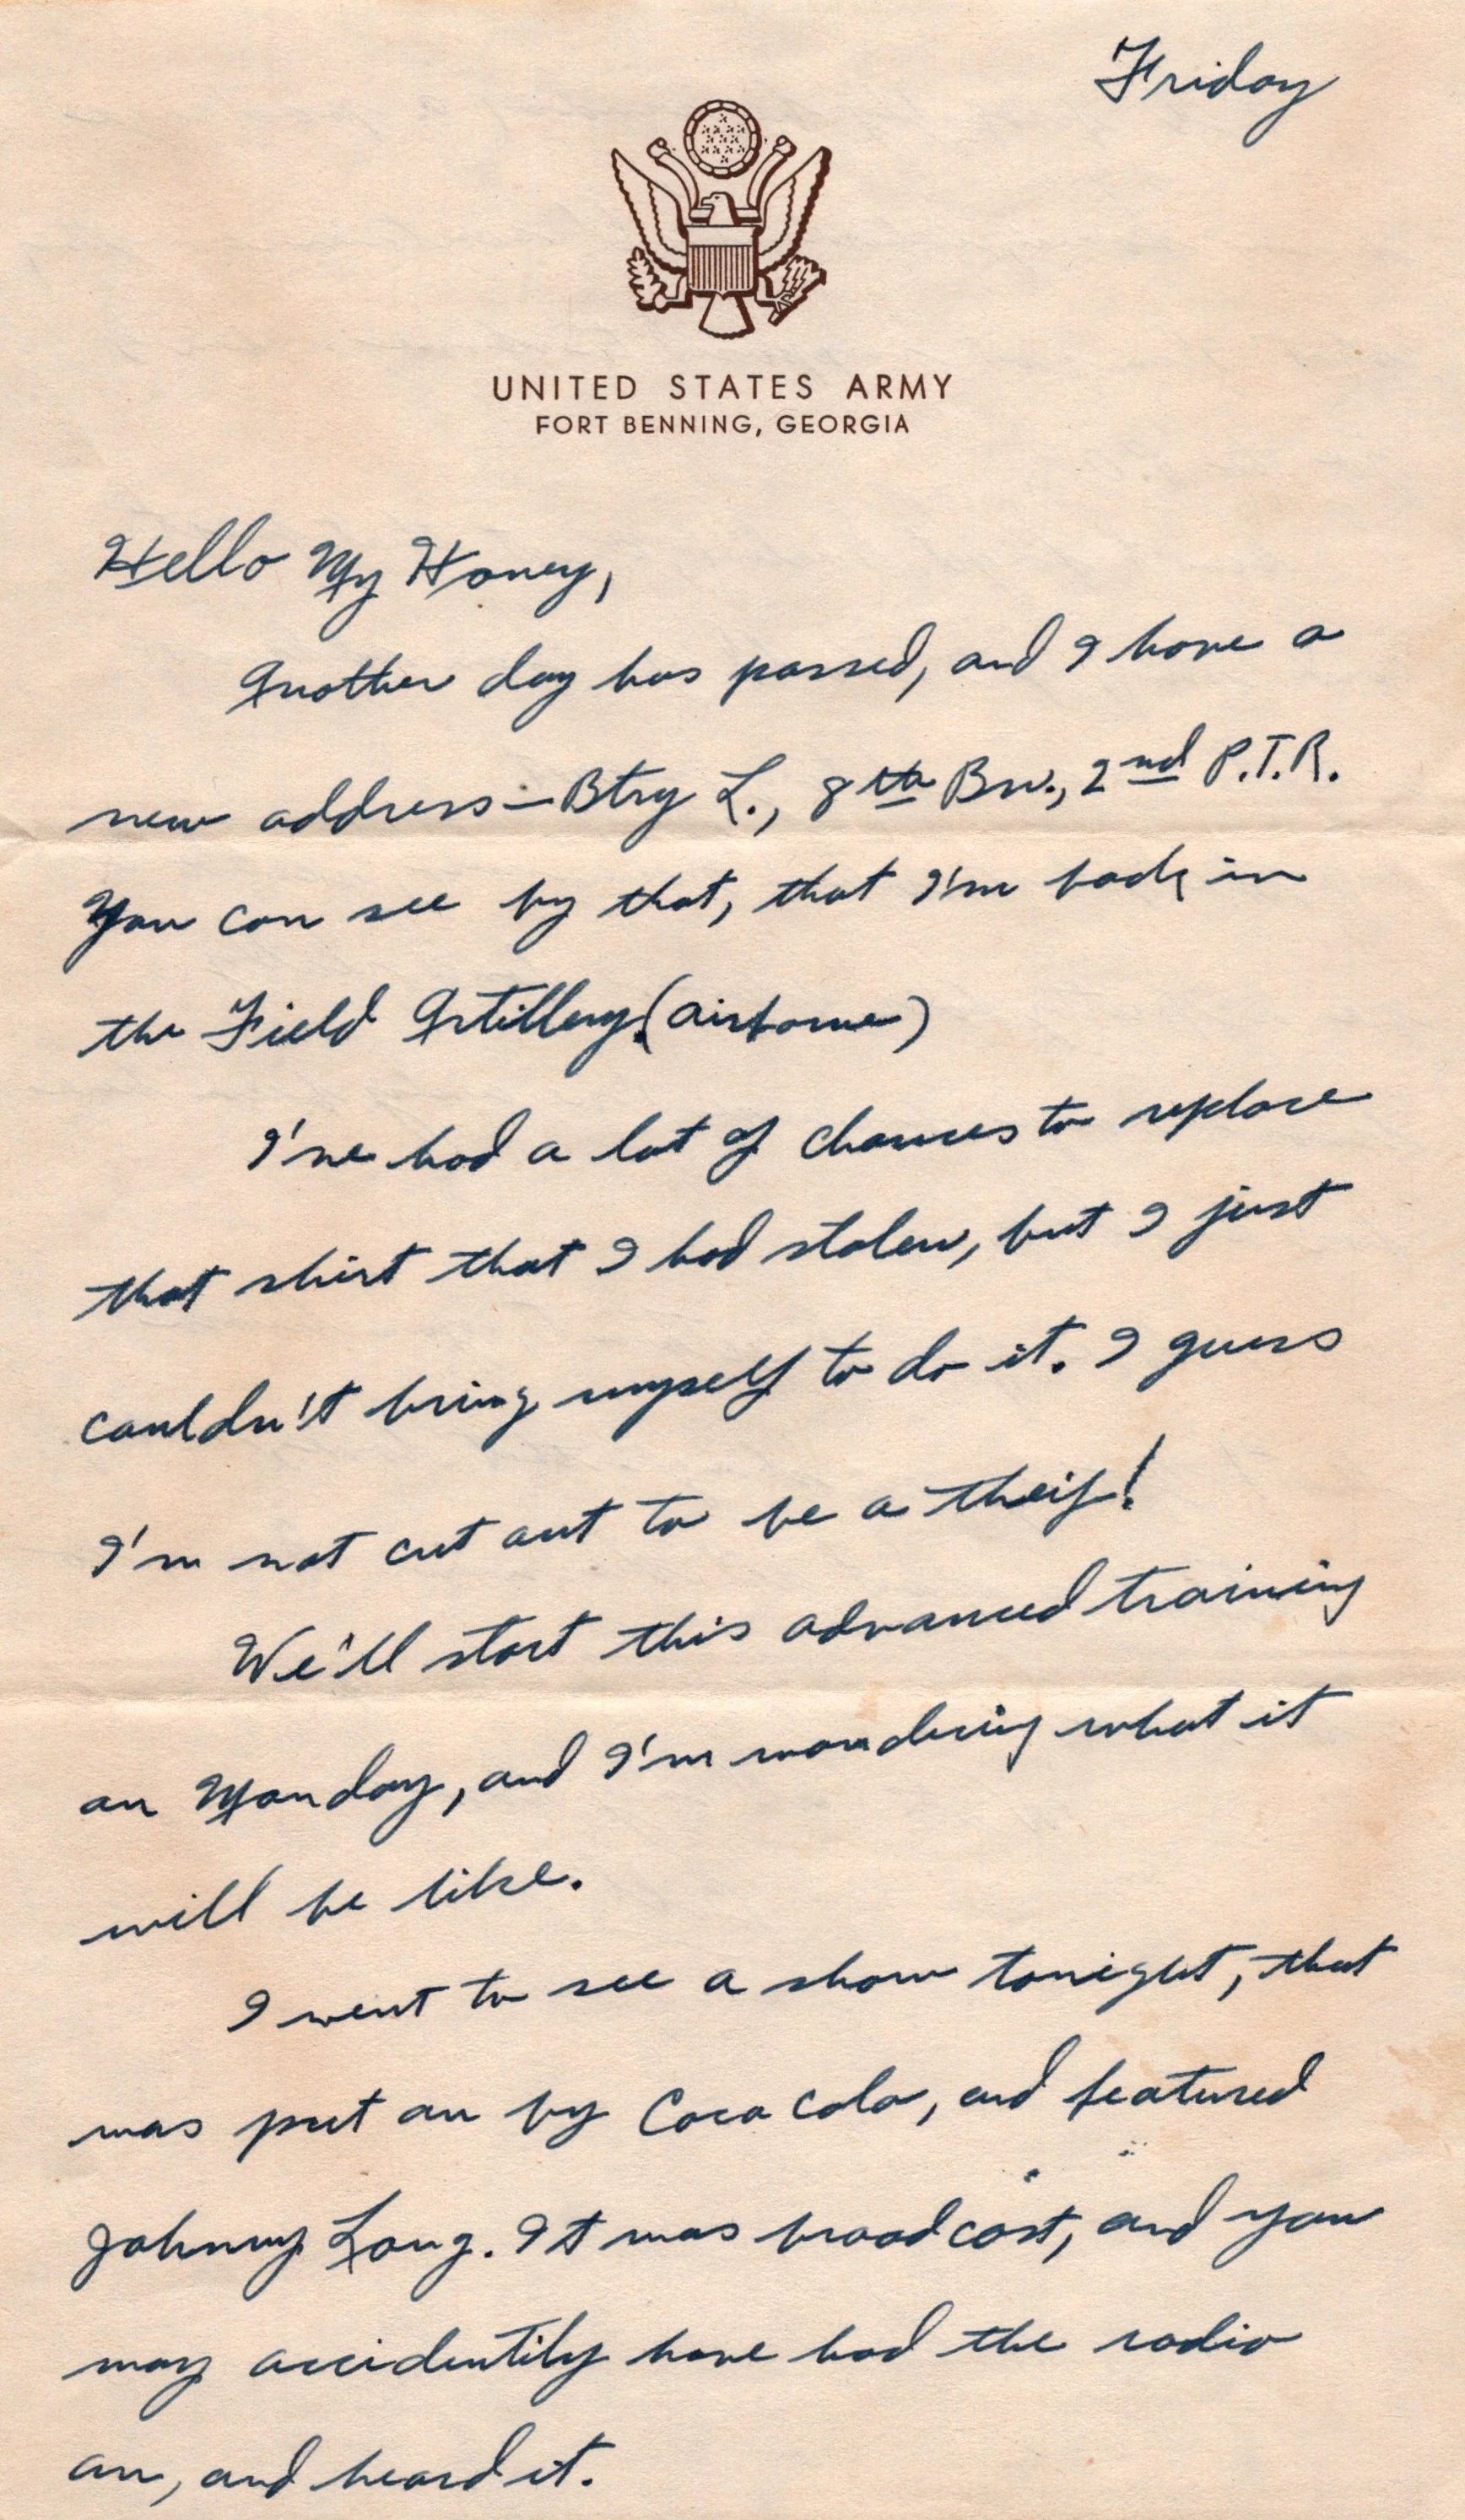 Friday
UNITED STATES ARMY
FORT BENNING, GEORGIA
Hello My Honey,
Another day has passed, and I have a
new address - Btry L., 8th Bn., 2nd P.T.R.
You can see by that, that I'm back in
the Field Artillery. (airborne)
I've had a lot of chances to replace
that shirt that I had stolen, but I just
couldn't bring myself to do it. I guess
I'm not cut out to be a theif!
We'll start this advanced training
on Monday, and I'm wondering what it
will be like.
I went to see a show tonight, that
was put on by Coca Cola, and featured
Johnny Long. It was broadcast, and you
may accidentily have had the radio
on, and heard it.